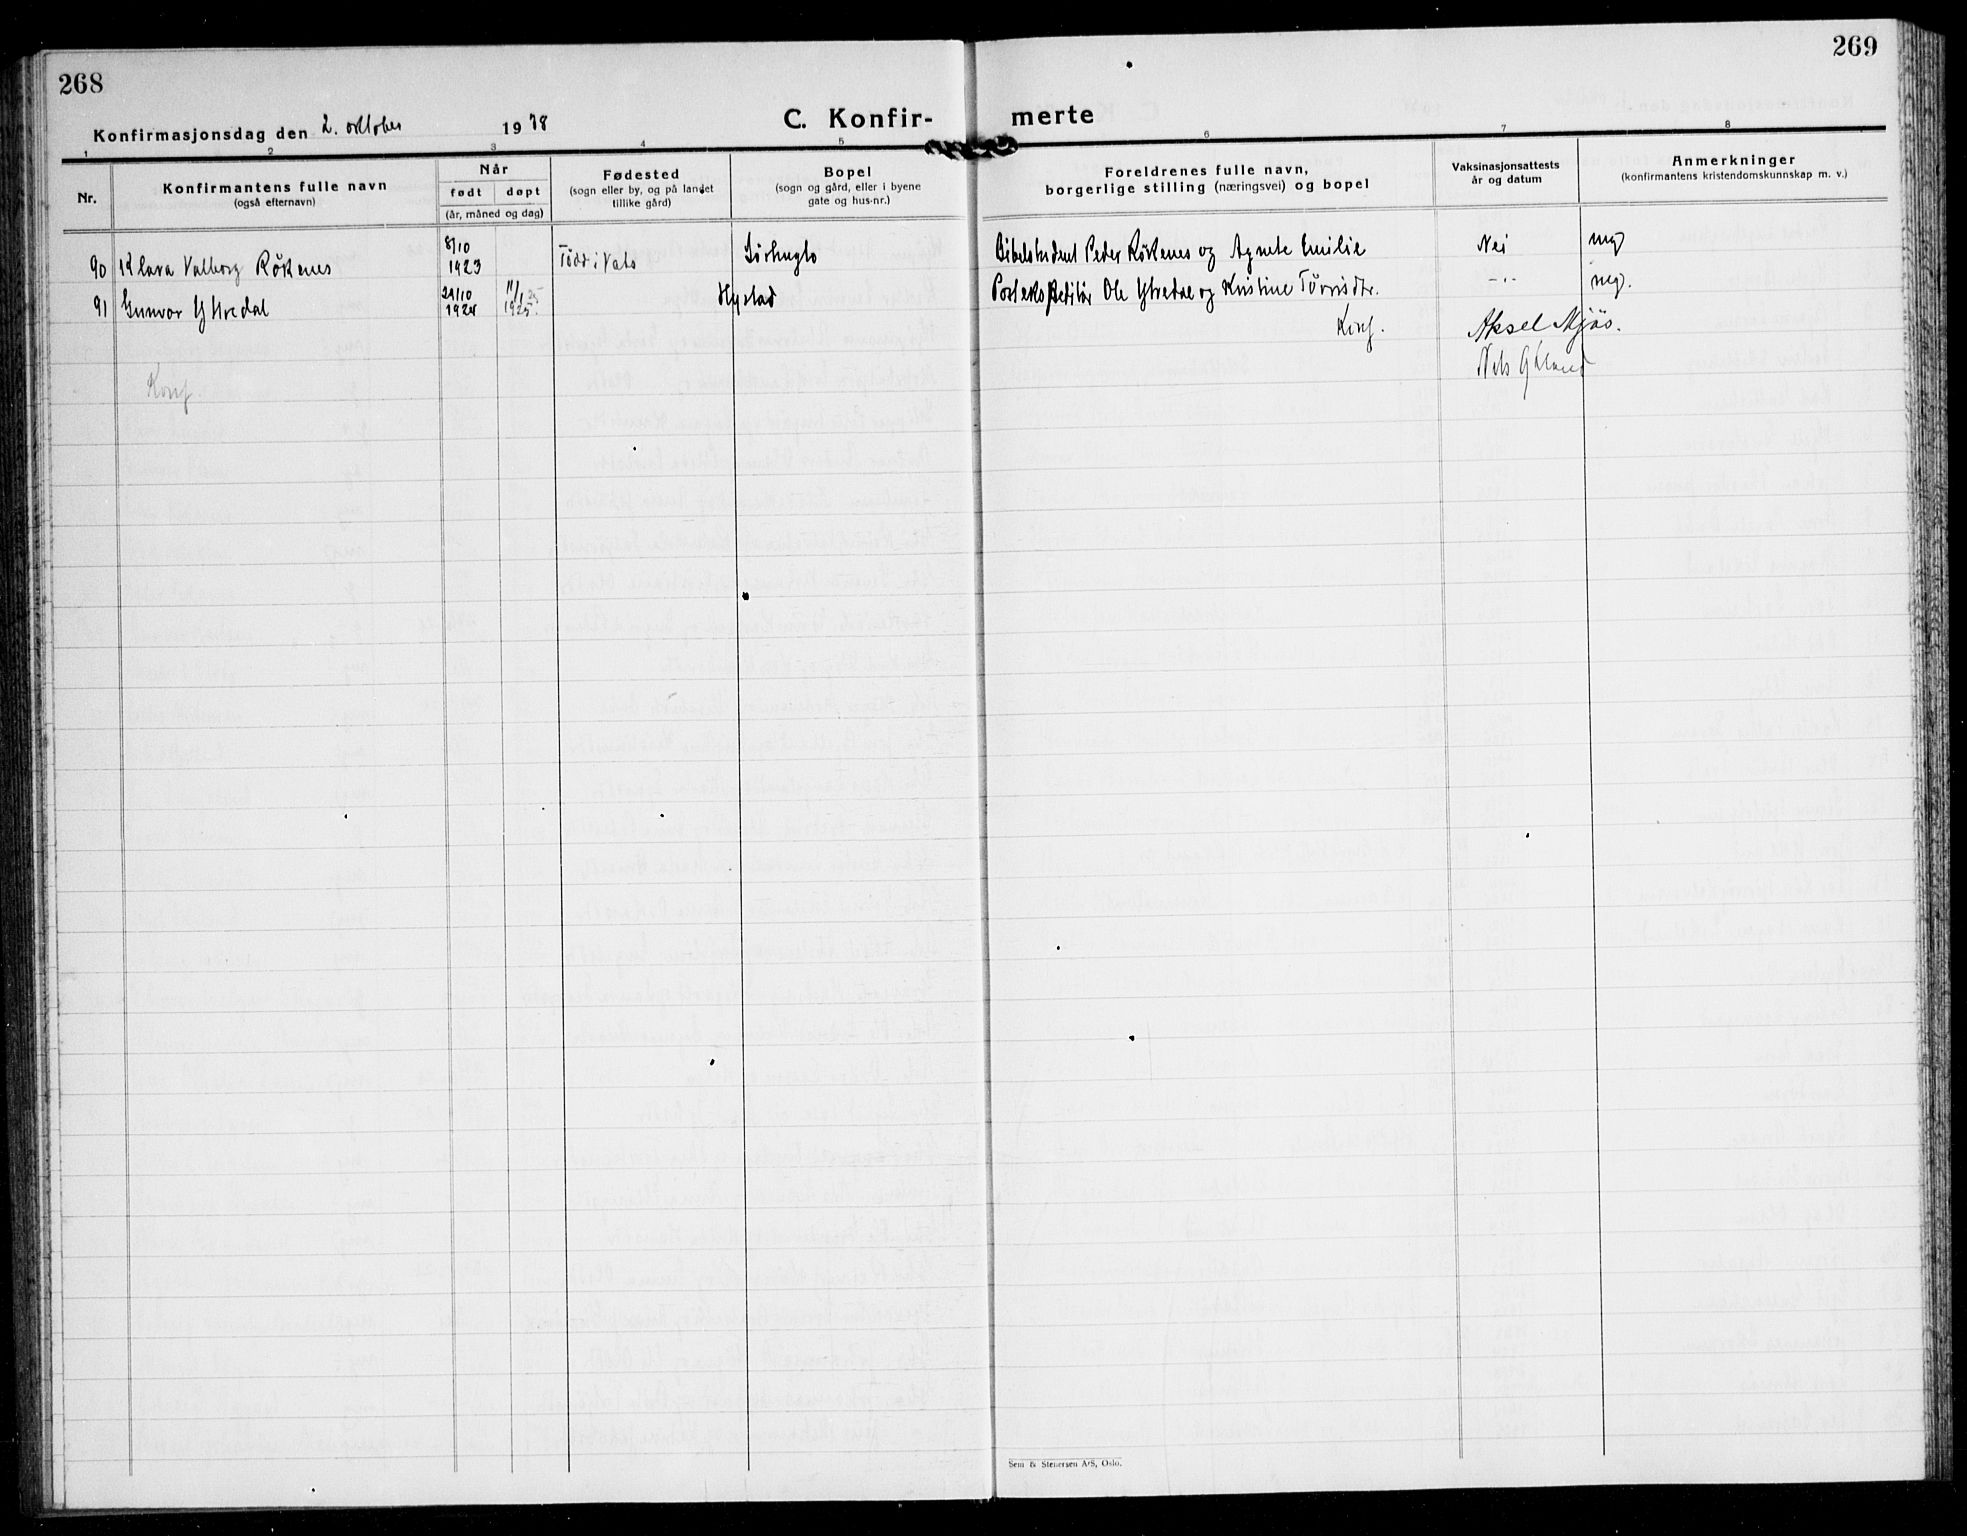 268
Konfirmasjonsdag den 2. oktober 1938
C. Konfir-
1 2 3 4 5
Nr.
Konfirmantens fulle navn
(også efternavn)
Når
født døpt
(år, måned og dag)
Fødested
(sogn eller by, og på landet
tillike gård)
Bopel
(sogn og gård, eller i byene
gate og hus-nr.)
90 Klara Valborg Røkenes 8/10 1923 Født i Vats Sørhuglo
91 Gunvor Ytredal 29/10 1924 11/1 25 1925. Hystad
Konf.
269
merte
6 7 8
Foreldrenes fulle navn,
borgerlige stilling (næringsvei) og bopel
Vaksinasjonsattests
år og datum
Anmerkninger
(konfirmantens kristendomskunnskap m. v.)
Peder Røkenes og Agnete Emilie Nei mg
Postekspeditør Ole Ytredal og Kristine Tørrisdtr. -"- mg.
Konf. Aksel Mjøs.
Nils
Sem & Stenersen A/S, Oslo.